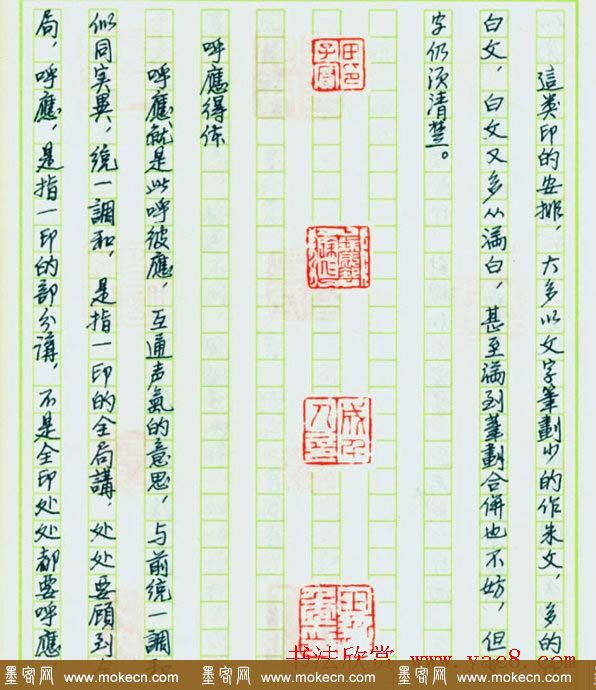 這类印的安排，大多以文字筆劃少的作朱文，多的
白文，白文又多从满白，甚至满到筆劃合併也不妨，但
字仍须清楚。
呼應得体
呼應就是此呼彼應，互通声氣的意思，与前统一調和
似同实異，统一調和，是指一印的全局講，处处要顾到
局，呼應，是指一印的部分講，不是全印处处都要呼應
书法欣赏 www.yac8.com
墨客网 www.mokecn.com 墨客网 www.mokecn.com 墨客网 www.mokecn.com